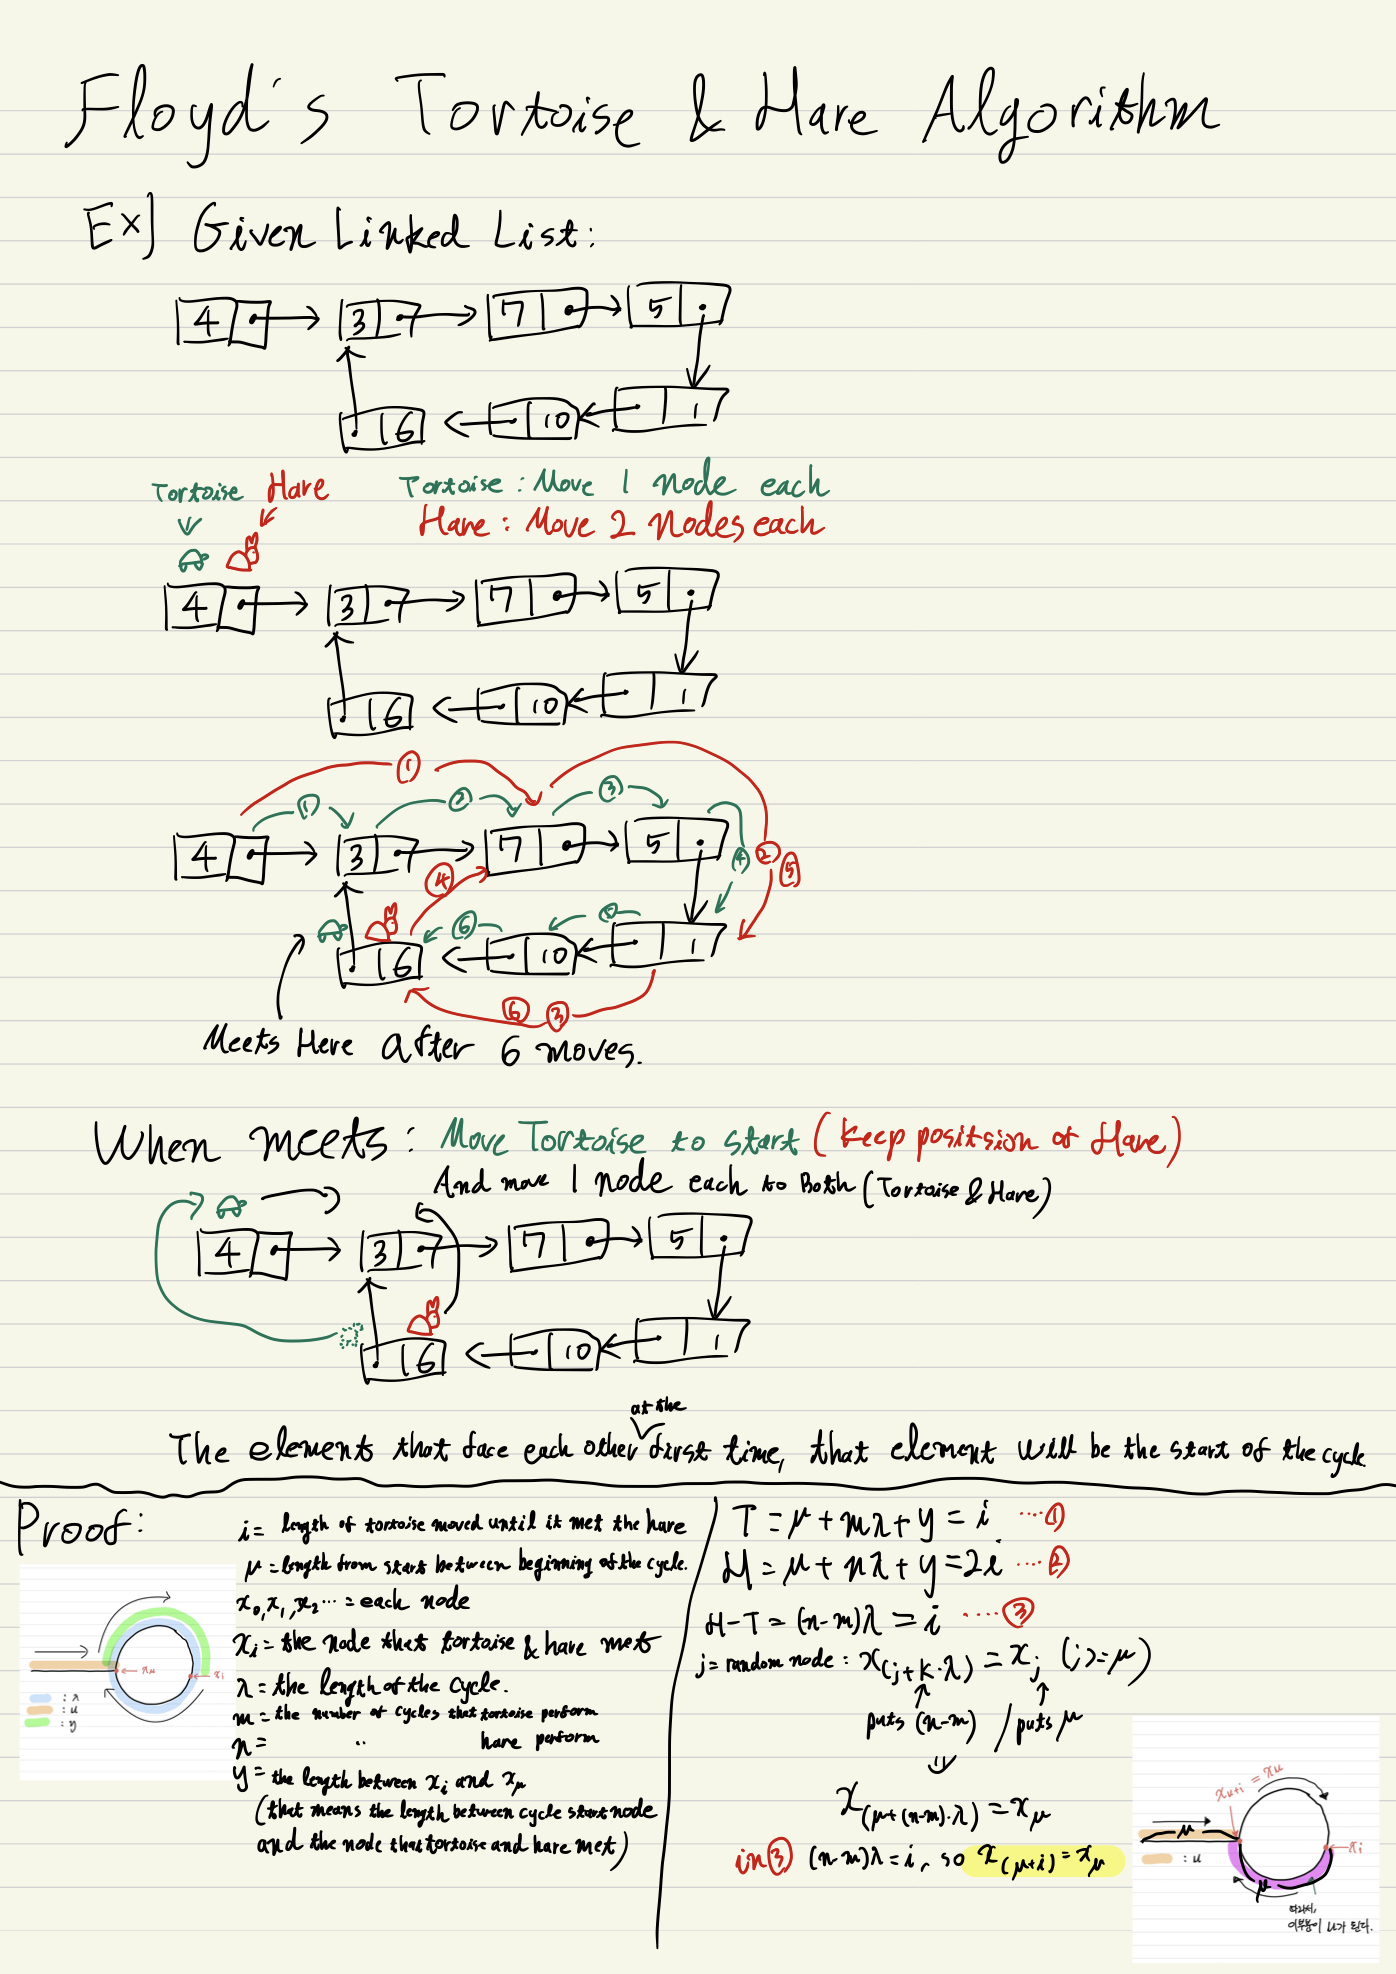 Floyd's Tortoise & Hare Algorithm
Ex] Given Linked List:
4 3 7 5
6 10 1
Tortoise Hare
Tortoise : Move 1 node each
Hare : Move 2 Nodes each
4 3 7 5
6 10 1
① ① ② ③
4 3 7 5
④ ④ ② ⑤
⑥ ⑤
6 10 1
⑥ ③
Meets Here after 6 moves.
When meets: Move Tortoise to start (keep positsion of Hare)
And move 1 node each to Both (Tortoise & Hare)
4 3 7 5
6 10 1
at the
The elements that face each other first time, that element will be the start of the cycle
Proof:
i = length of tortoise moved until it met the hare
μ = length from start between beginning of the cycle.
x₀, x₁, x₂ ... = each node
xᵢ = the node that tortoise & hare mets
λ = the length of the cycle.
m = the number of cycles that tortoise perform
n = '' hare perform
y = the length between xᵢ and xμ
(that means the length between cycle start node
and the node that tortoise and hare met)
xμ
xᵢ
: λ
: μ
: y
T = μ + mλ + y = i ....①
H = μ + nλ + y = 2i ....②
H-T = (n-m)λ = i .....③
j = random node : x(j+k·λ) = xj (j>=μ)
puts (n-m) / puts μ
x(μ+(n-m)·λ) = xμ
in ③ (n-m)λ = i, so x(μ+i) = xμ
xμ+i = xμ
μ
xᵢ
: μ
μ
따라서,
이부분이 μ가 된다.